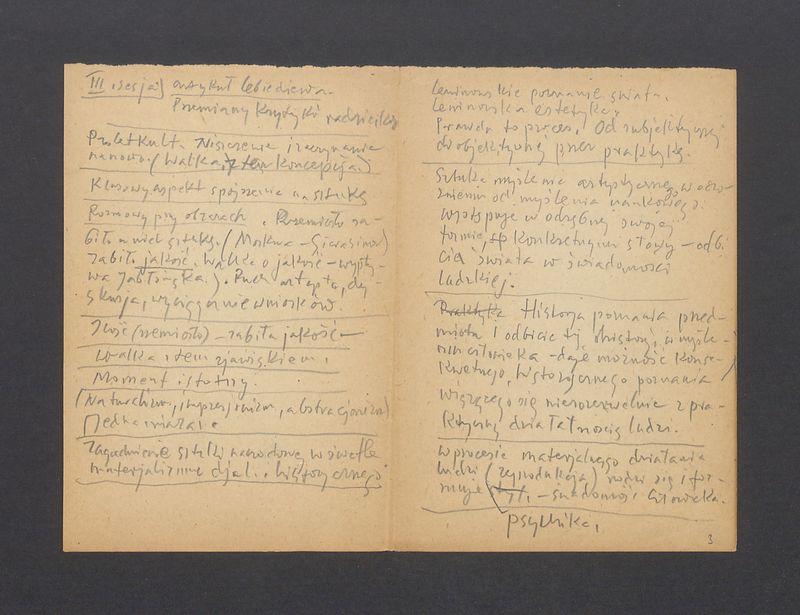 III sesja) artykuł Lebiediewa.
Przemiany krytyki radzieckiej
Proletkult. Niszczenie i zaczynanie
na nowo. (Walka z tą koncepcją.)
Klasowy aspekt spojrzenia na sztukę
Rozmowy przy obrazach. Rzemiosło za-
biło u nich sztukę. (Moskwa – Gierasimow)
zabiło jakość. Walka o jakość – wypły-
wa Jabłońska.). Ruch artysta, dy-
skusja, wyciąganie wniosków.
Ilość (rzemiosło) – zabiła jakość –
Walka z tem zjawiskiem,
Moment istotny.
(Naturalizm, impresjonizm, abstrakcjonizm)
Jedna miazga
Zagadnienie sztuki narodowej w świetle
materjalizmu djal. historycznego
Leninowskie poznanie świata.
Leninowska estetyka,
Prawda to proces, Od subjektywnej
do objektywnej przez praktykę.
Sztuka myślenie artystyczne, w odró-
żnieniu od myślenia naukowego
występuje w odrębnej swojej
formie, konkretyzm – odbi-
cia świata w świadomości
ludzkiej.
Praktyka Historja poznania przed-
miota i odbicie tej historji, w myśle-
niu człowieka – daje możność konse-
kwetnego, historycznego poznania
wiążącego się nierozerwalnie z pra-
ktyczną działalnością ludzi.
W procesie materjalnego działania
ludzi (reprodukcja) rodzi się i for-
muje – świadomość człowieka.
psychika,
3